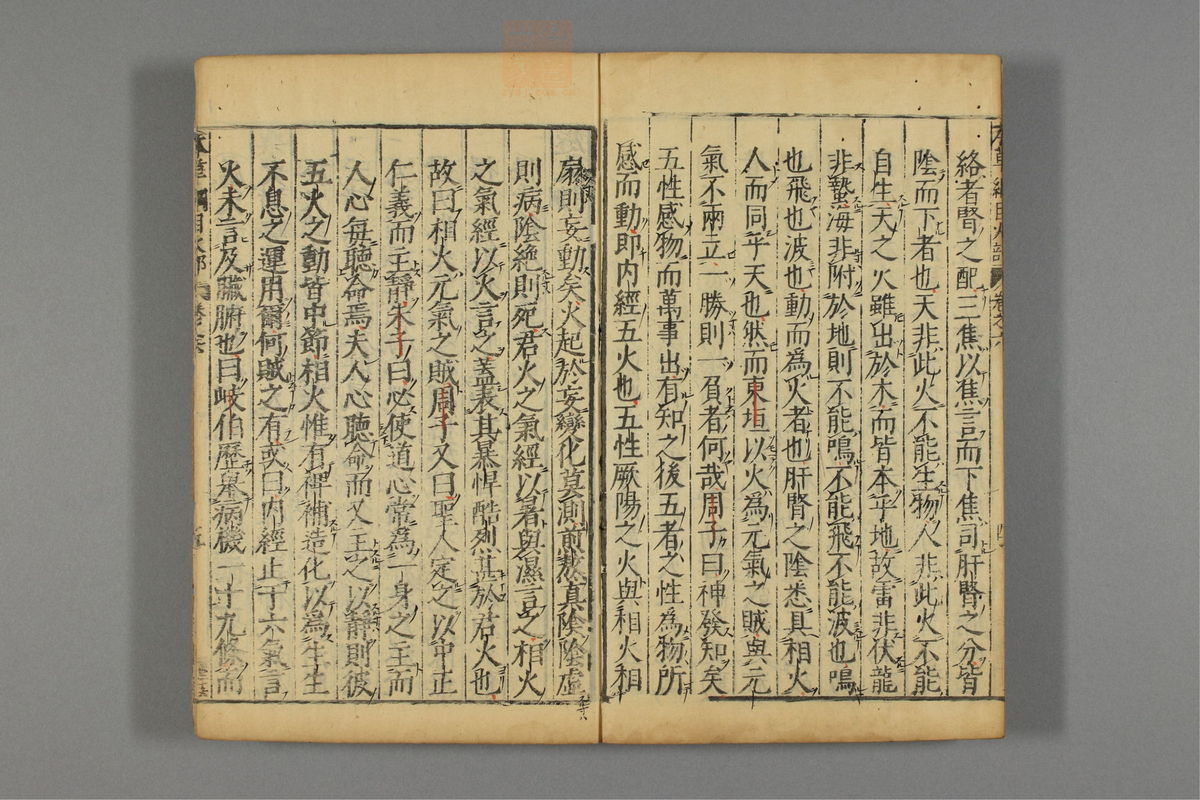 絡者腎之配三焦以焦言而下焦司肝腎之分皆
陰而下者也天非此火不能生物人非此火不能
自生天之火雖出於木而皆本乎地故雷非伏龍
非蟄海非附於地則不能鳴不能飛不能波也鳴
也飛也波也動而為火者也肝腎之陰悉具相火
人而同乎天也然而東垣以火為元氣之賊與元
氣不兩立一勝則一負者何哉周子曰神發知矣
五性感物而萬事出有知之後五者之性為物所
感而動即内經五火也五性厥陽之火與相火相
扇則妄動矣火起於妄變化莫測煎熬真陰陰虛
則病陰絶則死君火之氣經以暑與濕言之相火
之氣經以火言之蓋表其暴悍酷烈甚於君火也
故曰相火元氣之賊周子又曰聖人定之以中正
仁義而主靜朱子曰必使道心常為一身之主而
人心每聽命焉夫人心聽命而又主之以靜則彼
五火之動皆中節相火惟有裨補造化以為生生
不息之運用爾何賊之有或曰内經止于六氣言
火未言及臟腑也曰岐伯歷舉病機一十九條而
本草綱目火部